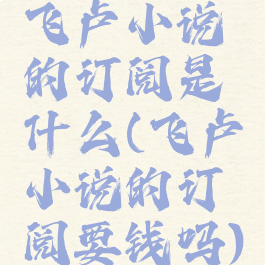 飞卢小说
的订阅是
什么(飞卢
小说的订
阅要钱吗)